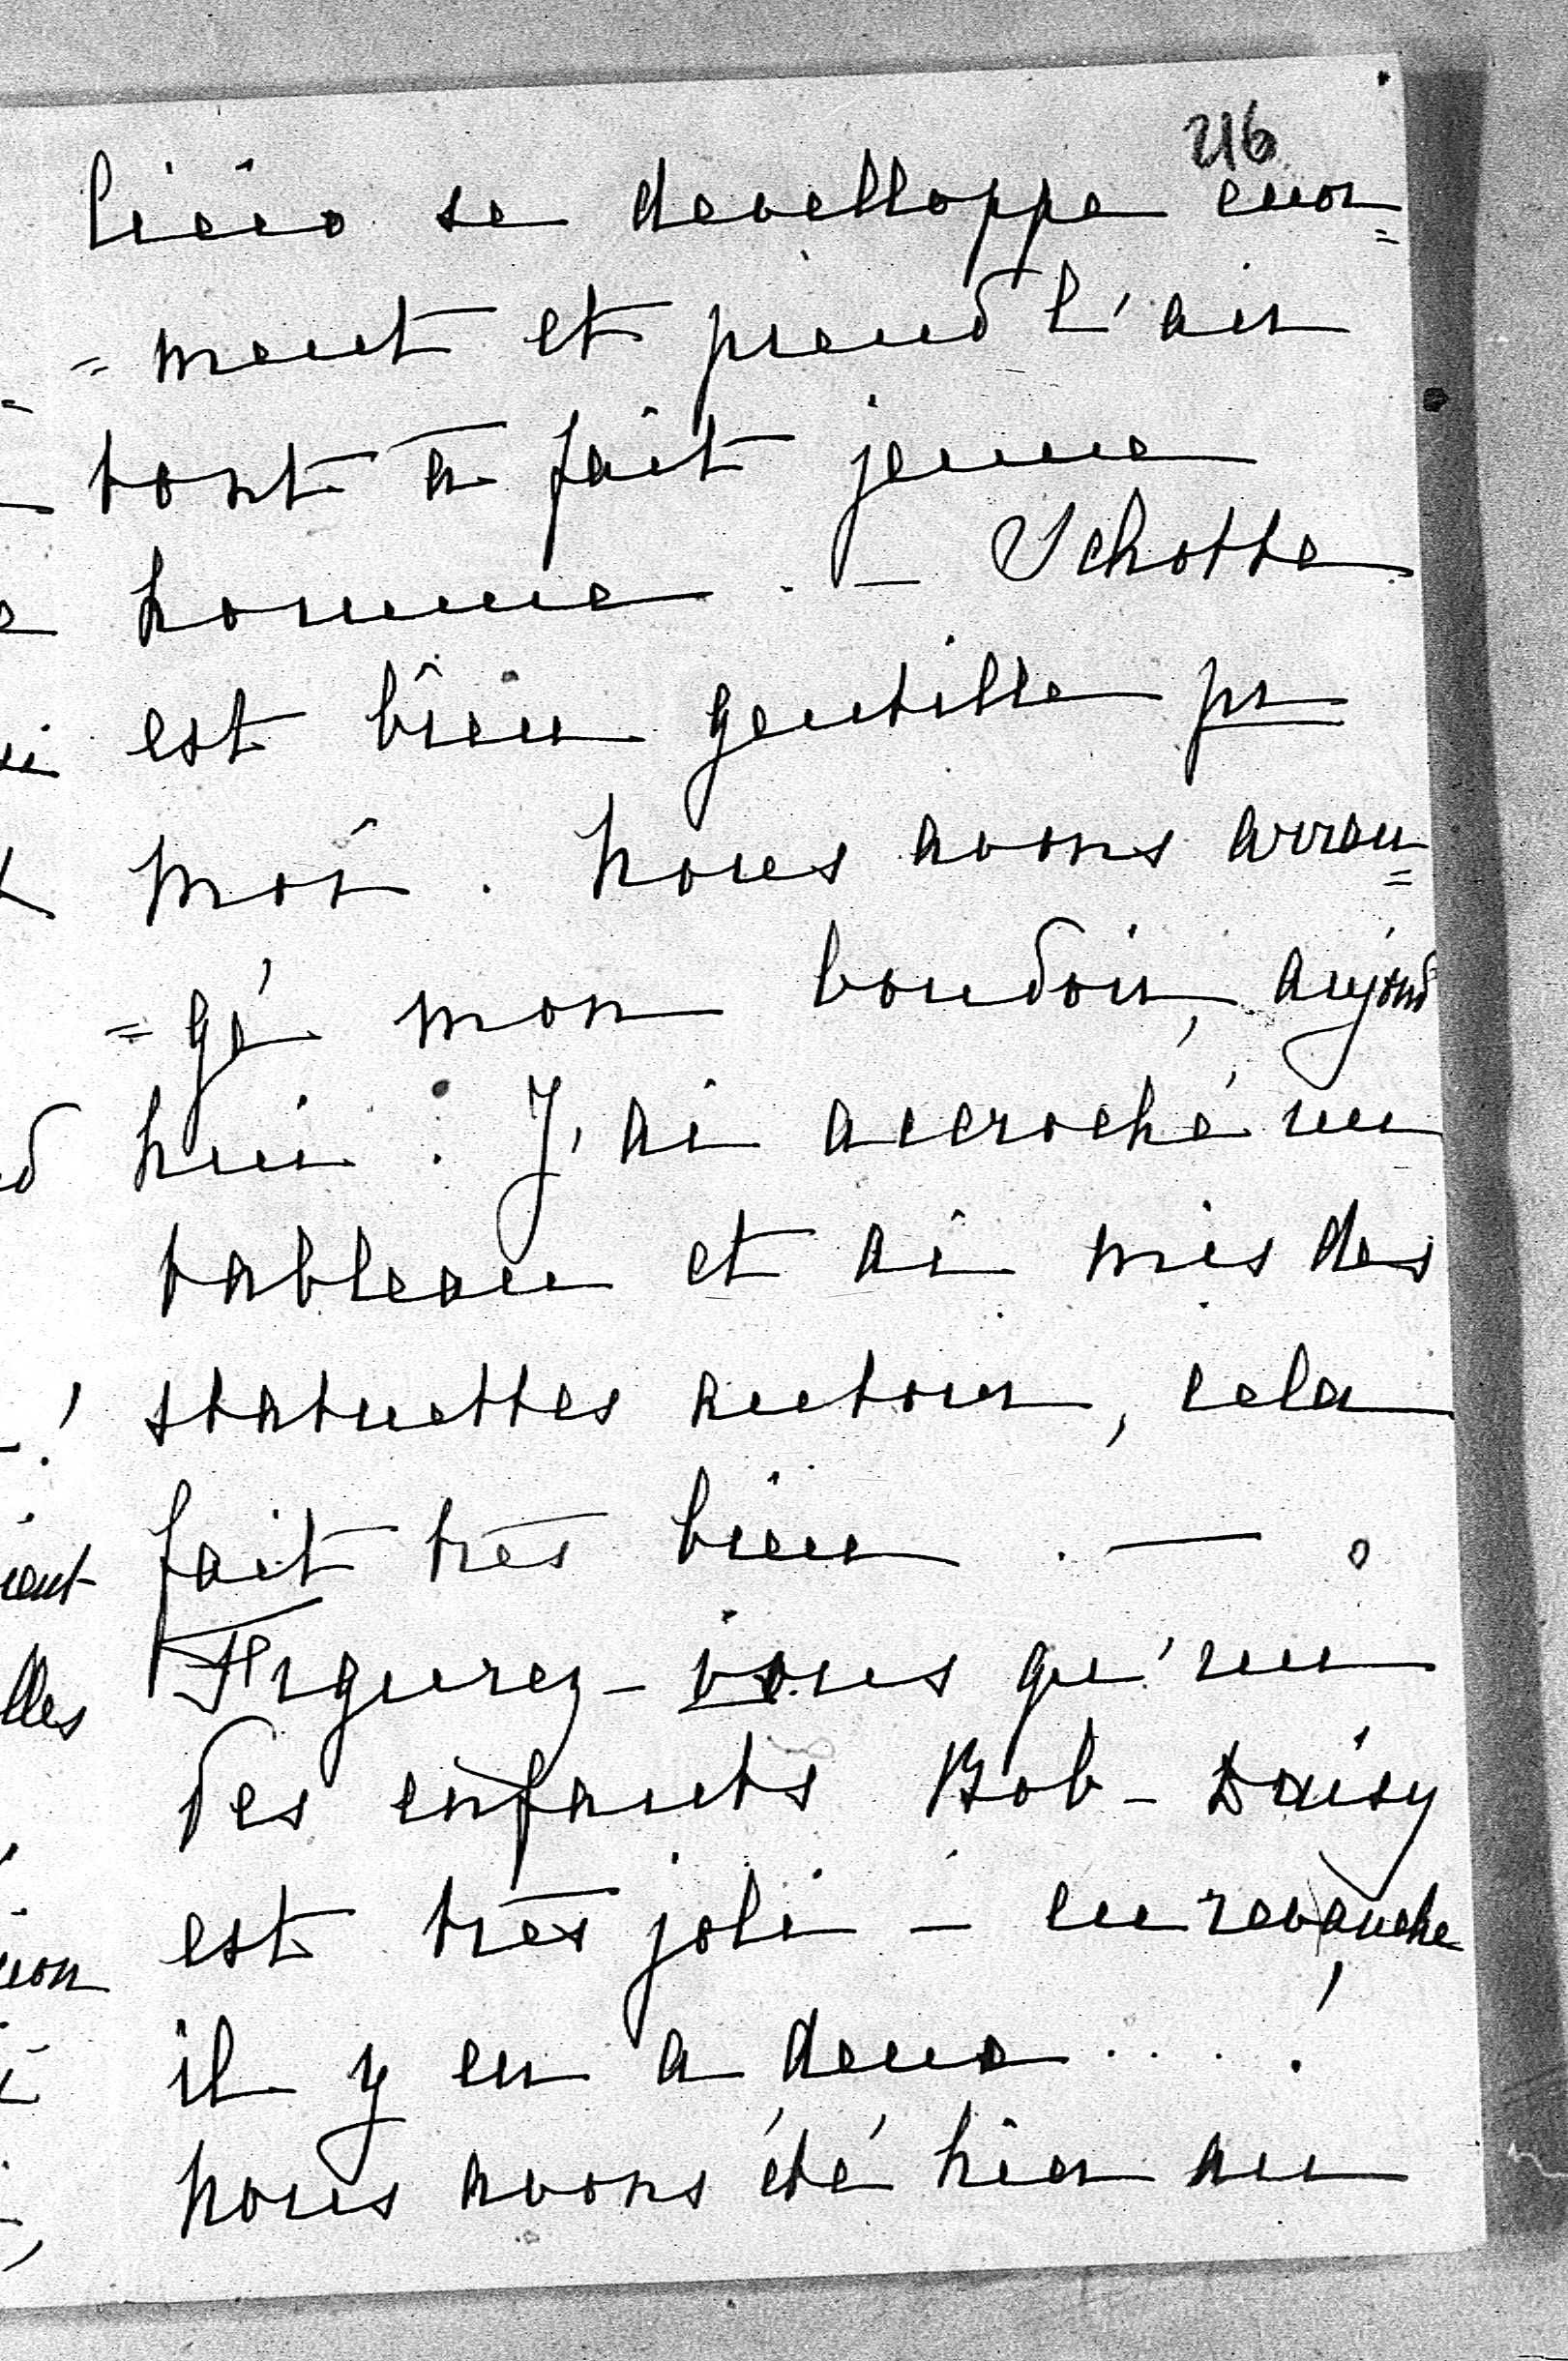 216
se developpe enor=
=ment et prend l'air
tout à fait jeune
homme. — Schotte
est bien gentille pr
moi. Nous avons arran=
=gé mon boudoir, aujourd
hui : J'ai accroché un
tableau et ai mis des
statuettes autour, cela
fait très bien. —
Figurez-vous qu'un
des enfants Bob-Daisy
est très joli — en revanche,
il y en a deux....
nous avons été hier au